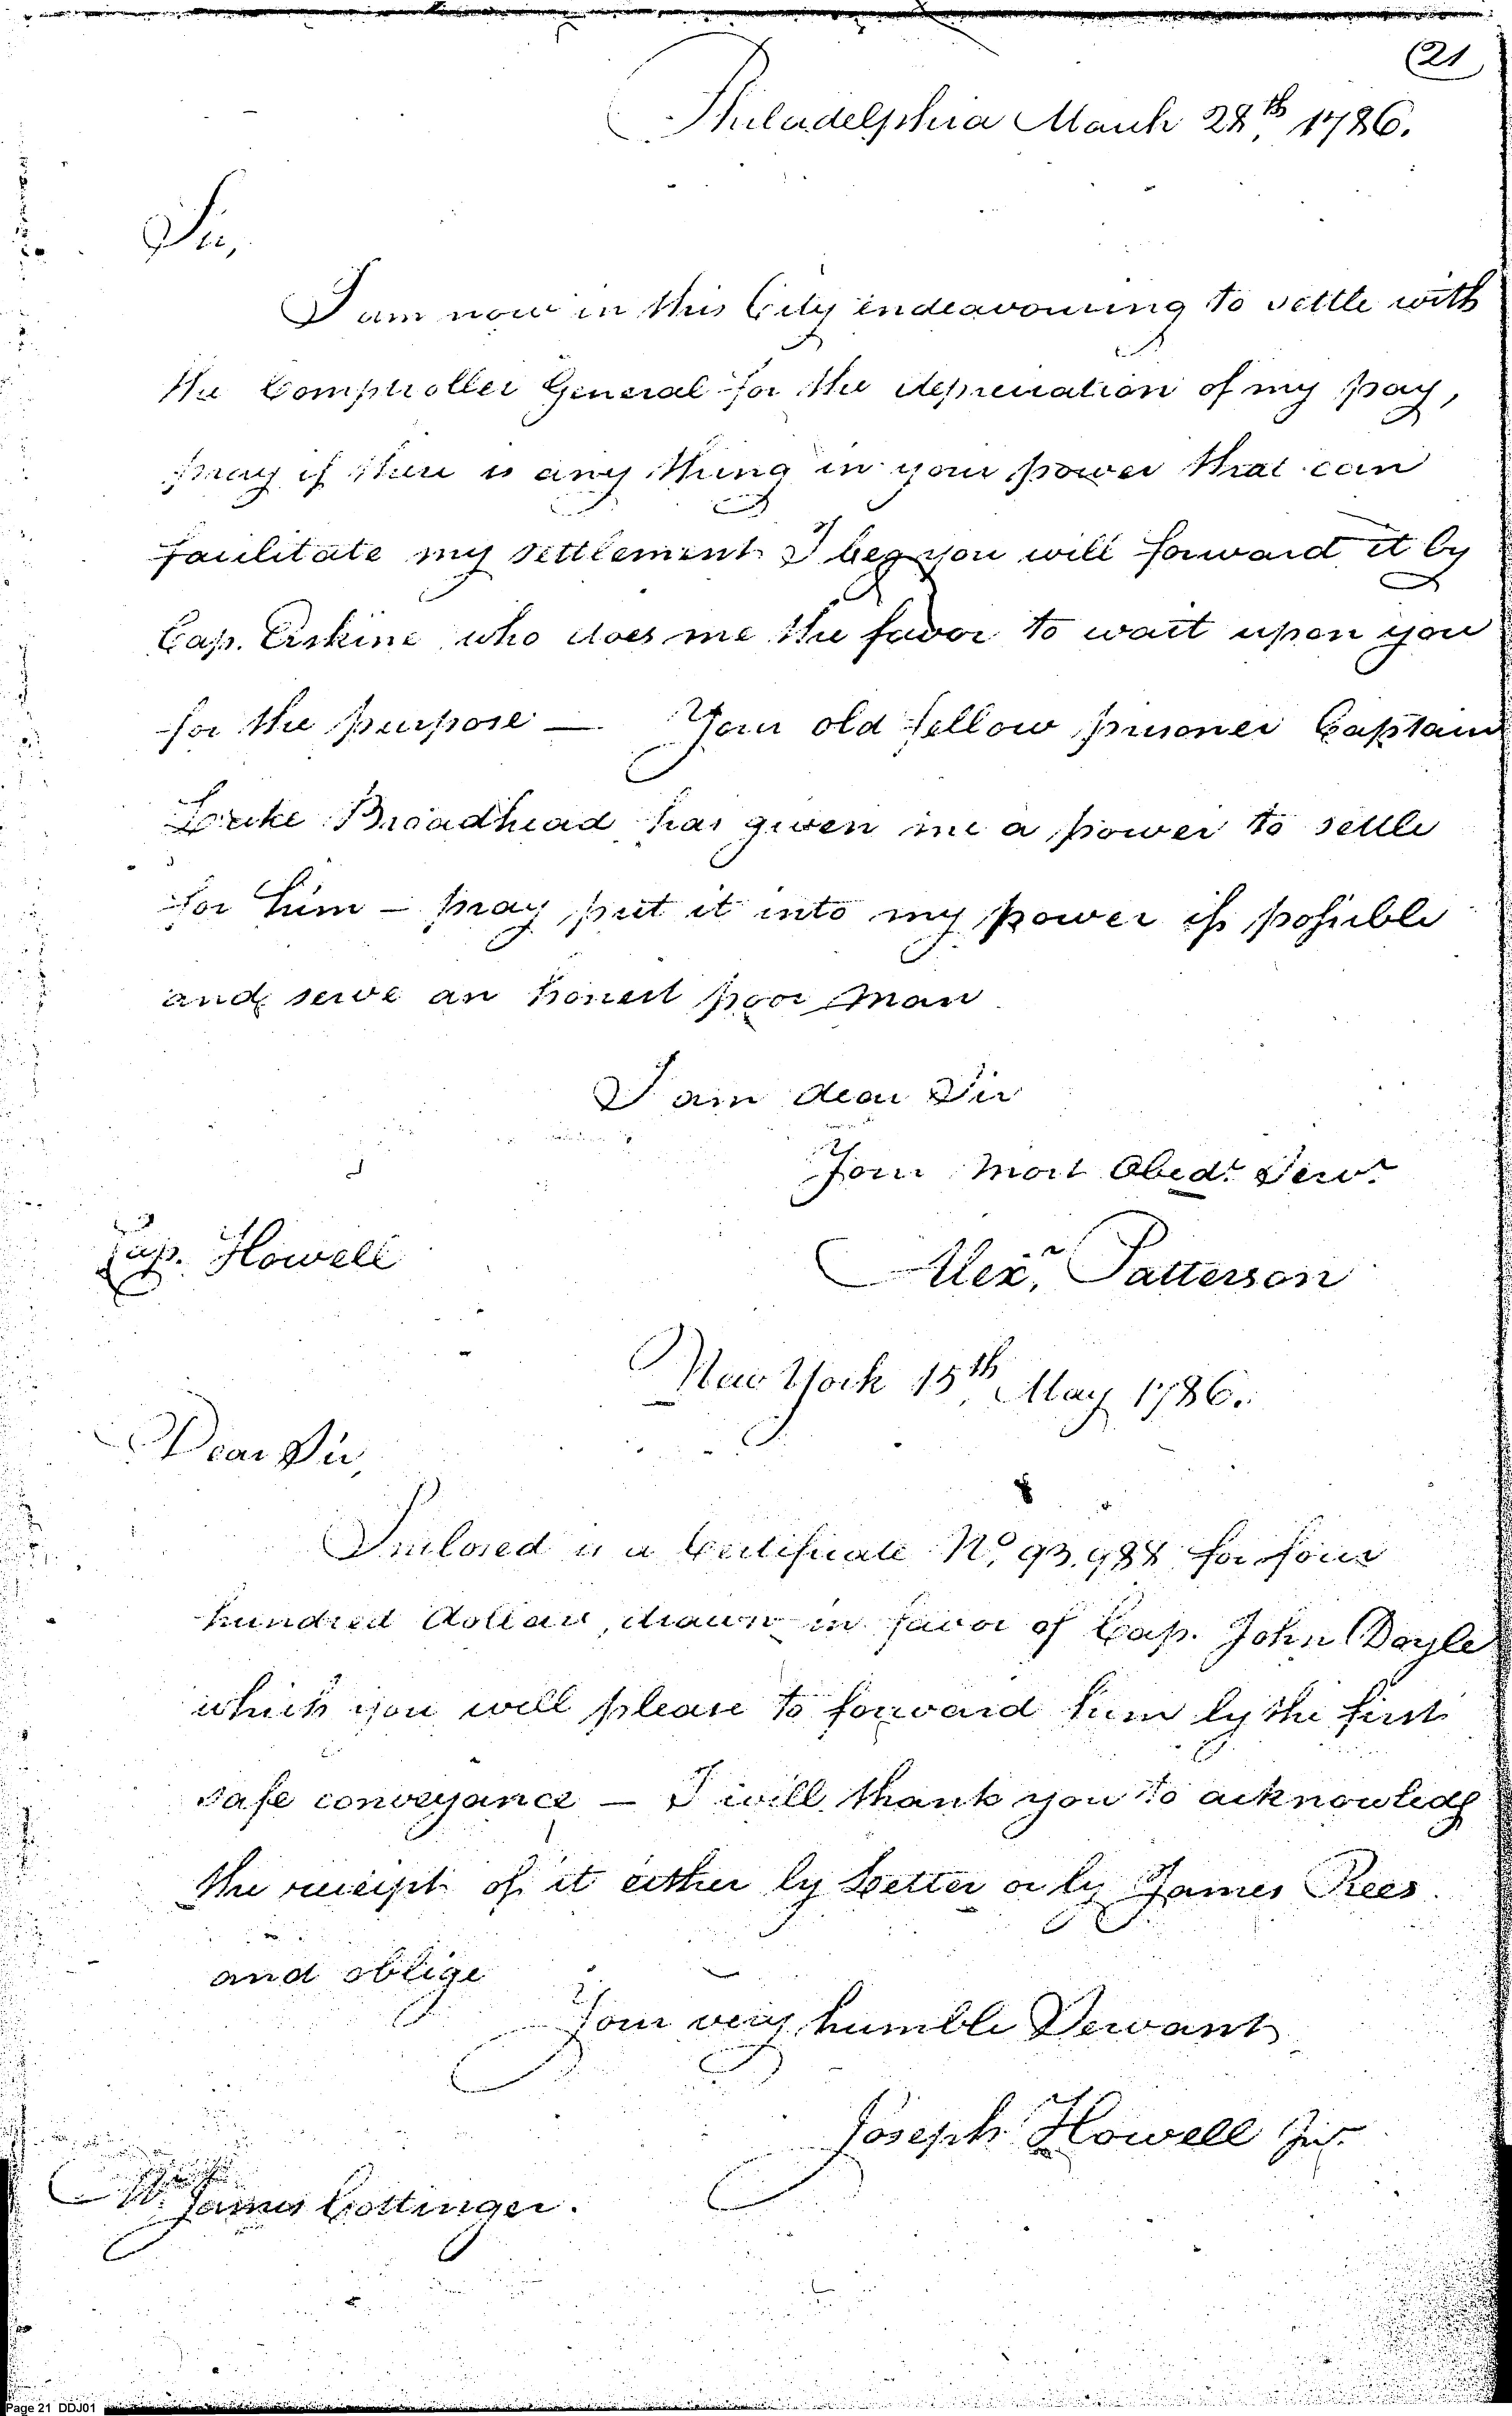 (21
Philadelphia March 28th 1786.
Sir,
I am now in this City endeavouring to settle with
the Comptroller General for the depreciation of my pay,
pray if there is any thing in your power that can
facilitate my settlement I beg you will forward it by
Cap. Erskine who does me the favor to wait upon you
for the purpose — Your old fellow prisoner Captain
Luke Broadhead has given me a power to settle
for him – pray put it into my power if possible
and serve an honest poor man
I am dear Sir
Your most Obedt Servt
Cap. Howell
Alexr Patterson
New York 15th May 1786.
Dear Sir,
Inclosed is a Certificate No 93.988 for four
hundred dollars, drawn in favor of Cap. John Doyle
which you will please to forward him by the first
safe conveyance — I will thank you to acknowledge
the receipt of it either by Letter or by James Rees
and oblige
Your very humble Servant
Joseph Howell Jur.
James Cottinger.
Page 21 DDJ01